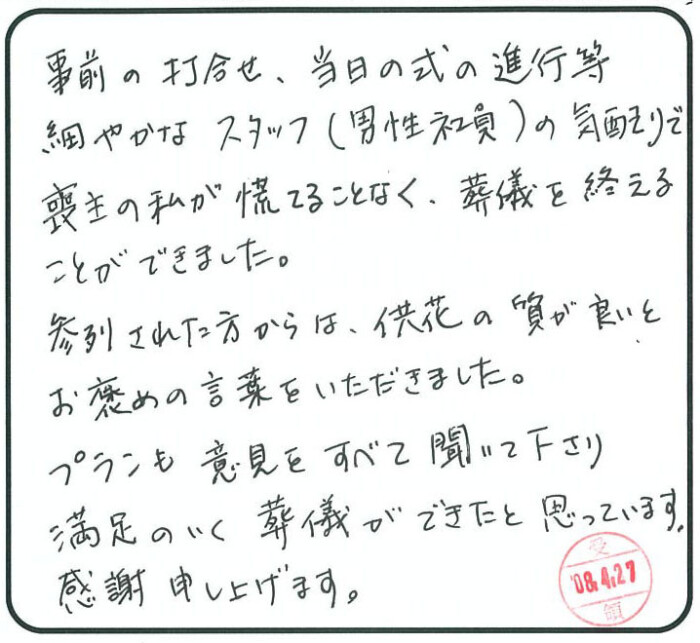 事前の打合せ、当日の式の進行等
細やかなスタッフ(男性社員)の気配りで
喪主の私が慌てることなく、葬儀を終える
ことができました。
参列された方からは、供花の質が良いと
お褒めの言葉をいただきました。
プランも意見をすべて聞いて下さり
満足のいく葬儀ができたと思っています。
感謝申し上げます。
受
'08.4.27
領